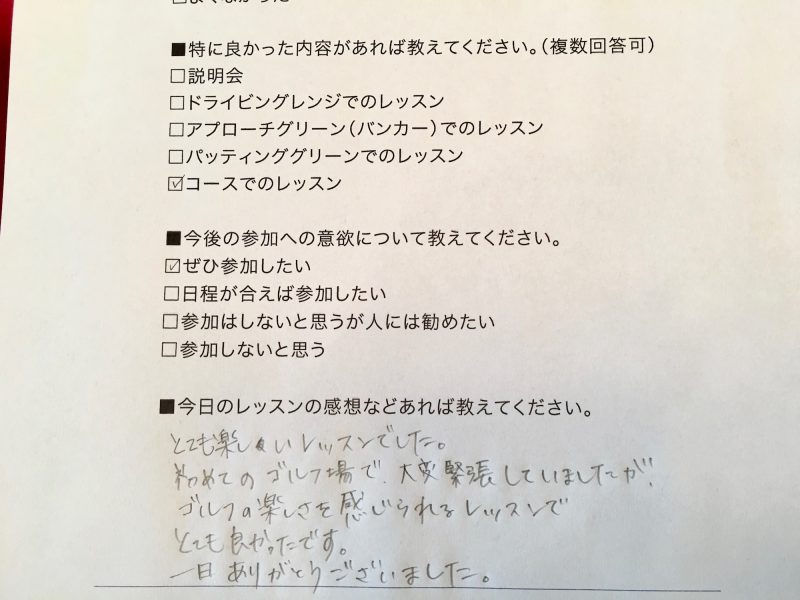 ■特に良かった内容があれば教えてください。(複数回答可)
□説明会
□ドライビングレンジでのレッスン
□アプローチグリーン(バンカー)でのレッスン
□パッティンググリーンでのレッスン
☑コースでのレッスン
■今後の参加への意欲について教えてください。
☑ぜひ参加したい
□日程が合えば参加したい
□参加はしないと思うが人には勧めたい
□参加しないと思う
■今日のレッスンの感想などあれば教えてください。
とても楽しいレッスンでした。
初めてのゴルフ場で、大変緊張していましたが、
ゴルフの楽しさを感じられるレッスンで
とても良かったです。
一日ありがとうございました。